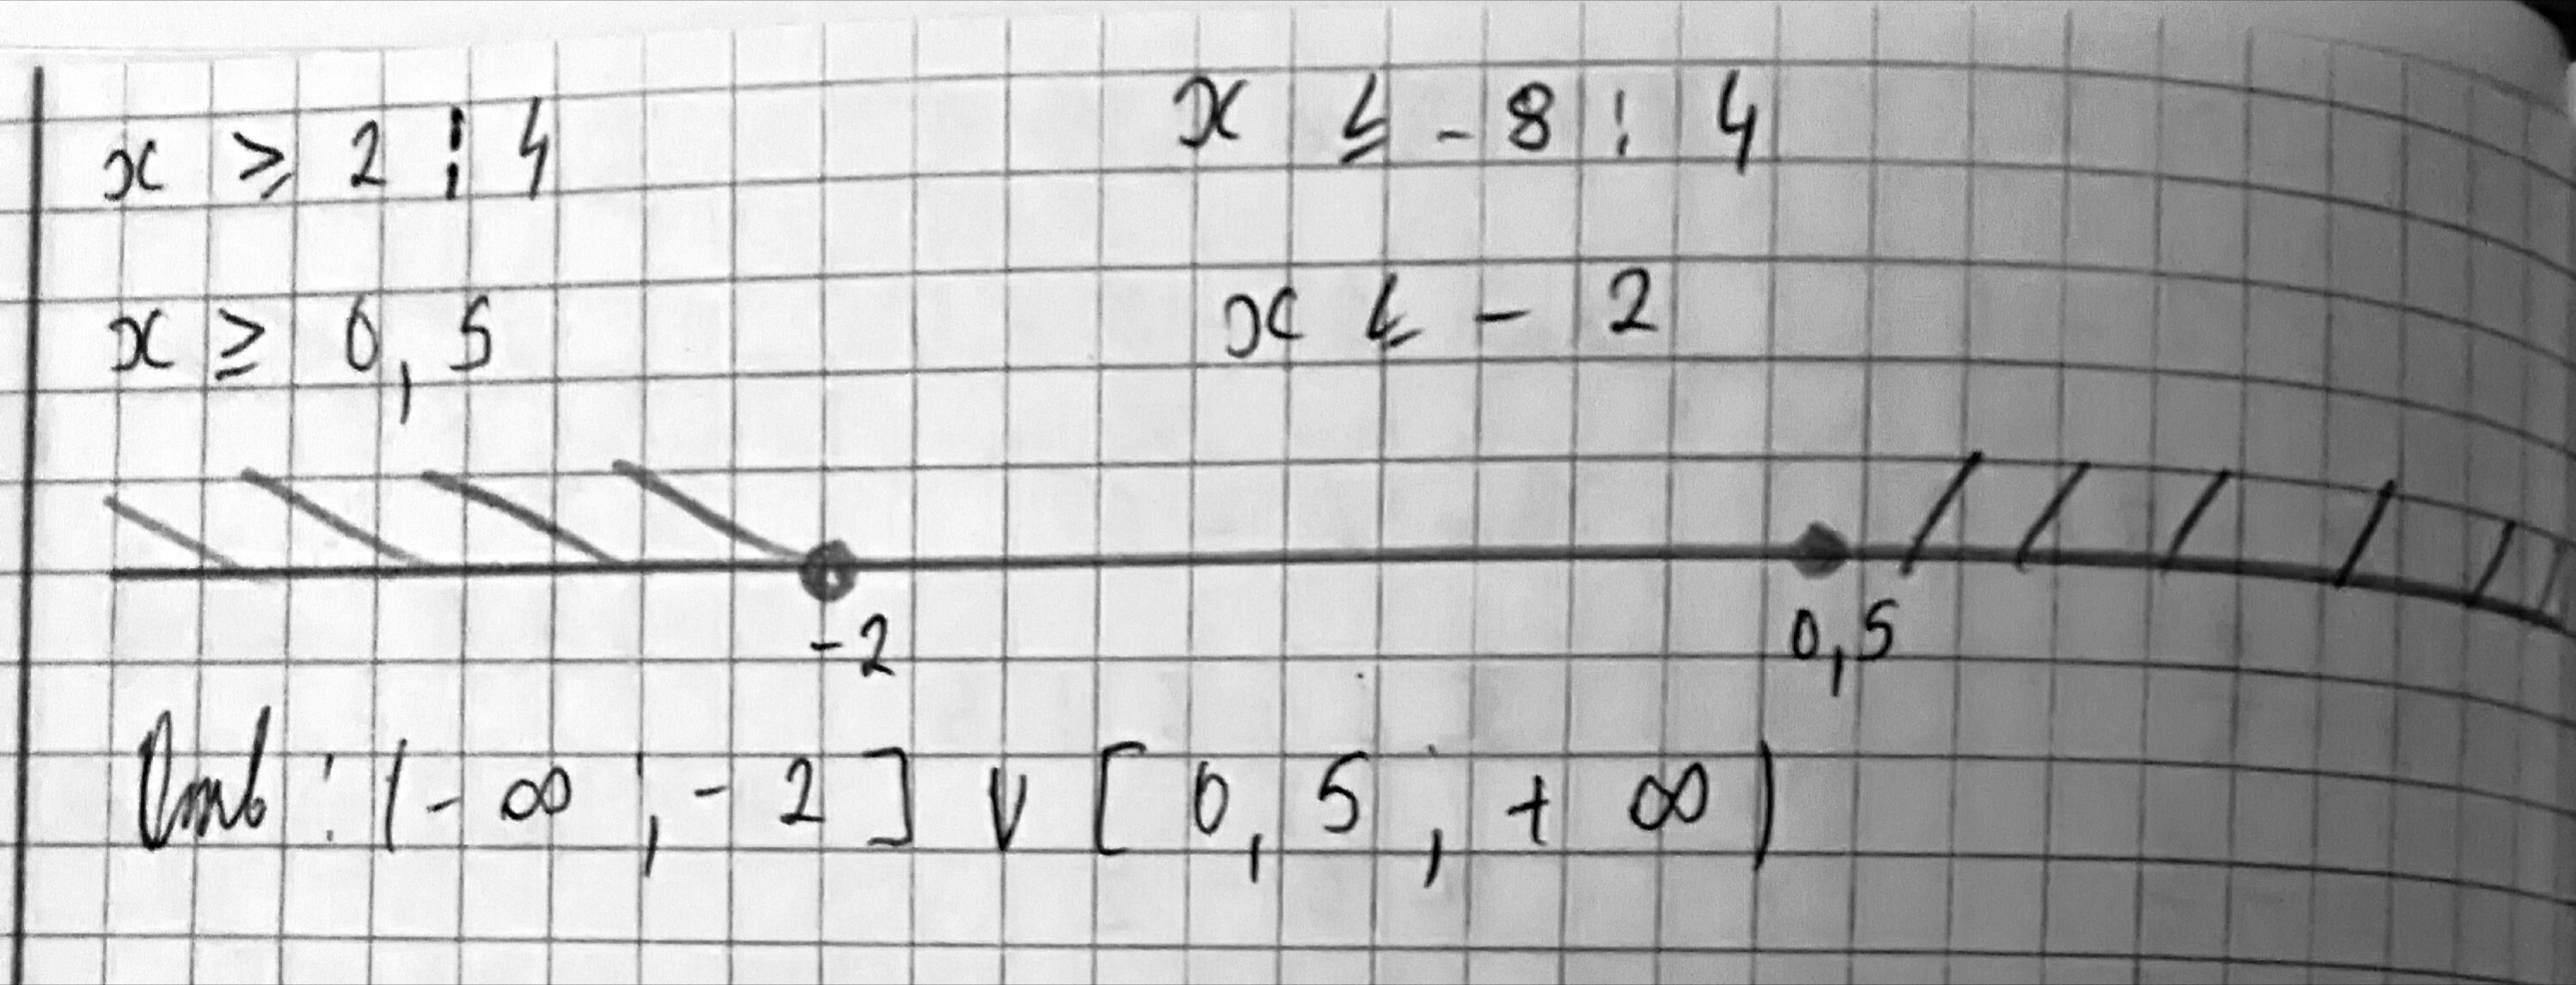 x ≥ 2 : 4    x ≤ - 8 : 4
x ≥ 0,5    x ≤ - 2
-2    0,5
Отв : (- ∞ ; - 2 ] ∨ [ 0,5 ; + ∞ )